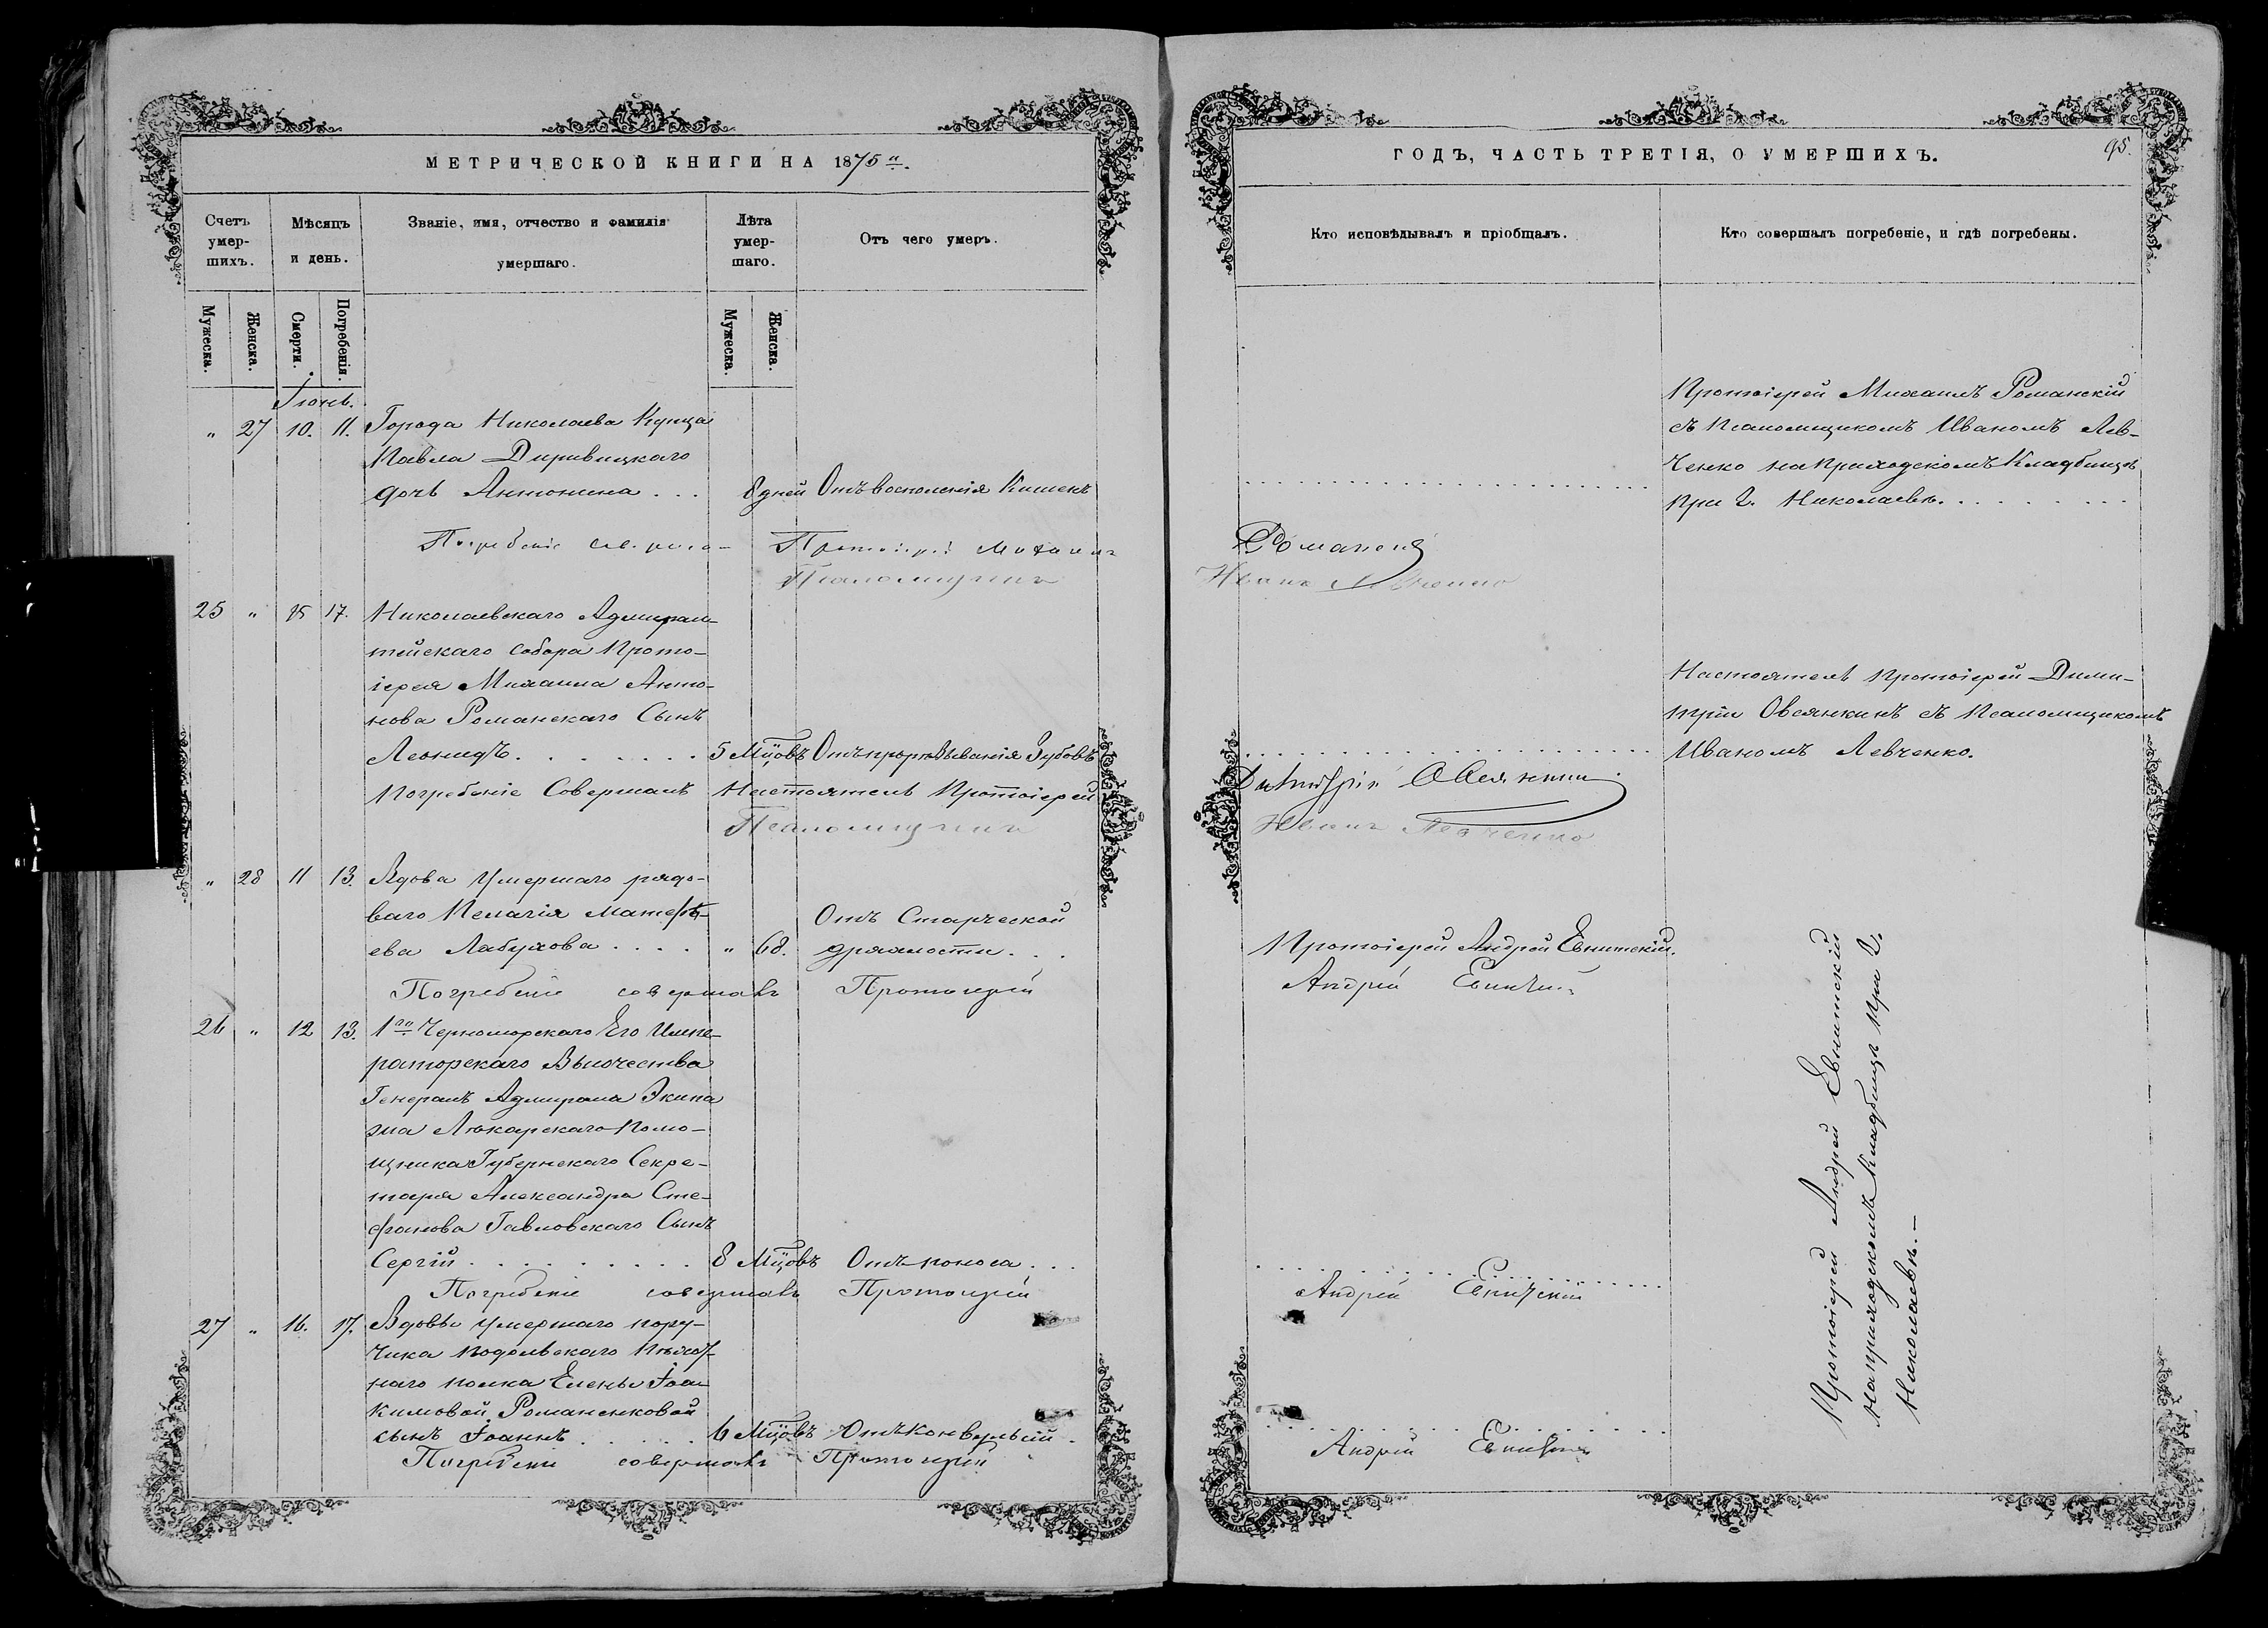 МЕТРИЧЕСКОЙ КНИГИ НА 1875 г.
Счетъ умер-шихъ.
Мѣсяцъ и день.
Званіе, имя, отчество и фамилія умершаго.
Лѣта умер-шаго.
Отъ чего умеръ.
Мужеска.
Женска.
Смерти.
Погребенія.
Мужеска.
Женска.
Іюнь.
" 27 10. 11. Города Николаева Купца
Павла
дочь Антонина . . . 8 дней Отъ воспаленія Кишекъ
Погребеніе Протоіерей Михаилъ
Псаломщикъ
25 " 15 17. Николаевскаго Адмирал-
тейскаго собора Прото-
іерея Михаила Анто-
нова Романскаго Сынъ
Леонидъ. . . . . . . 5 Мцовъ Отъ прорѣзыванія Зубовъ
Погребеніе Совершалъ Настоятель Протоіерей
Псаломщикъ
" 28 11 13. Вдова Умершаго рядо-
ваго Пелагія Матѳѣ-
ева Лабухова . . . . " 68. Отъ Старческой
дряхлости. . .
Погребеніе совершалъ Протоіерей
26 " 12 13. 1го Черноморскаго Его Импе-
раторскаго Высочества
Генералъ Адмирала Экипа
жа Лѣкарскаго Помо-
щника Губернскаго Секре-
таря Александра Сте-
фанова Павловскаго Сынъ
Сергій . . . . . . . . . 8 Мцовъ Отъ поноса . . .
Погребеніе совершалъ Протоіерей
27 " 16. 17. Вдовы Умершаго пору-
чика Подольскаго Пѣхот-
наго полка Елены Іоа-
кимовой Романенковой
сынъ Іоаннъ . . . . . 6 Мцовъ Отъ Конвульсій .
Погребеніе совершалъ Протоіерей
ГОДЪ, ЧАСТЬ ТРЕТІЯ, О УМЕРШИХЪ.
95.
Кто исповѣдывалъ и пріобщалъ.
Кто совершалъ погребеніе, и гдѣ погребены.
Протоіерей Михаилъ Романскій
съ Псаломщикомъ Иваномъ Лев-
ченко на Приходскомъ Кладбищѣ
при г. Николаевѣ. . . . . . .
Романскій
Иванъ Левченко
Настоятель Протоіерей Дими-
трій Овсянкинъ съ Псаломщикомъ
Иваномъ Левченко.
Димитрій Овсянкинъ
Иванъ Левченко
Протоіерей Андрей Евнитскій.
Андрей Евнитскій
Андрей Евнитскій
Андрей Евнитскій
Протоіерей Андрей Евнитскій
на приходскомъ Кладбищѣ при г.
Николаевѣ. —